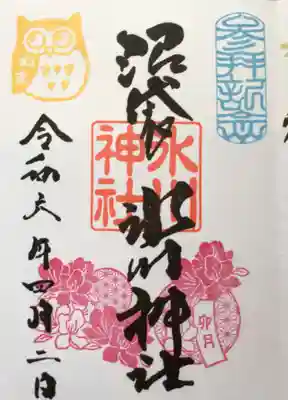 参拝記念
沼袋 氷川神社
氷川
神社
卯月
令和六年四月二日